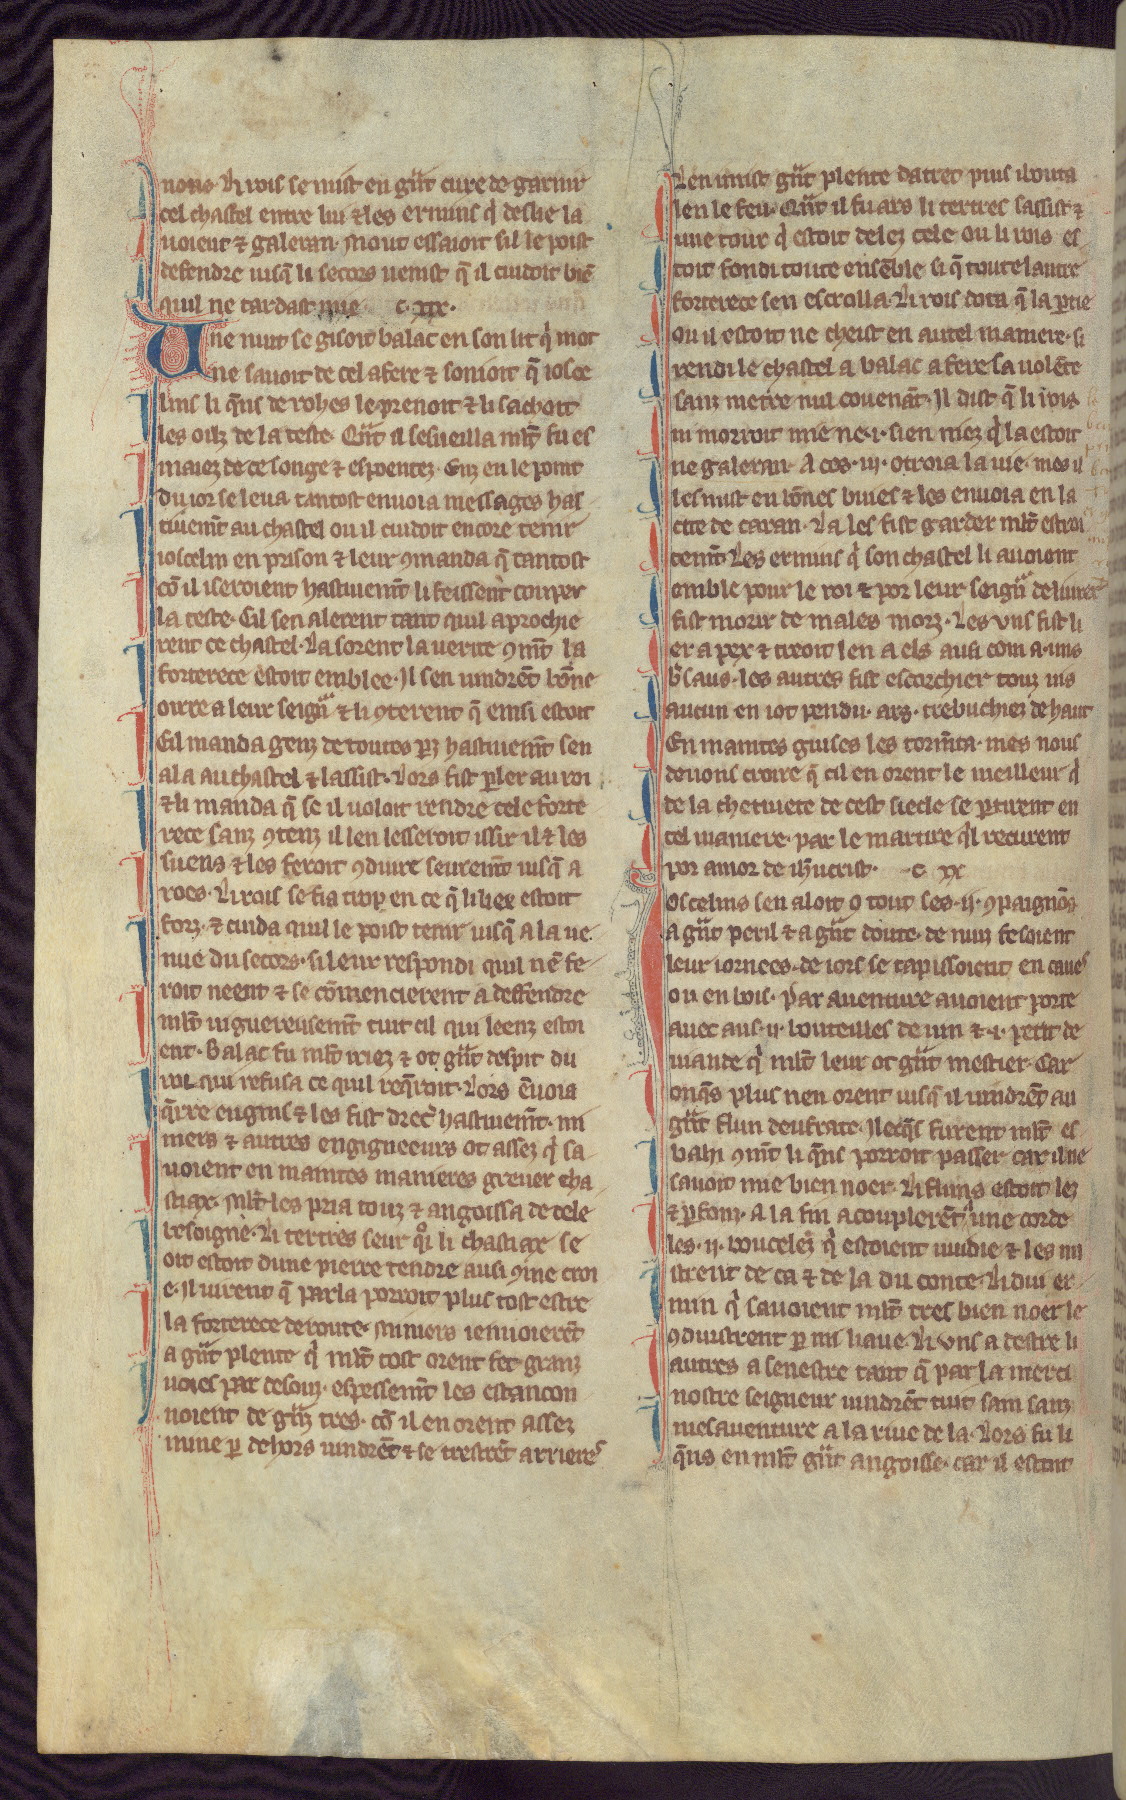 nons. Li rois se mist en gñt cure de garnir
cel chastel entre lui ⁊ les ermins q̇ deslie la
uoient ⁊ galeran. Mout essaioit sil le poist
defendre iusq̃ li secors uenist q̃ il cuidoit biē
quil ne tardast mie c. xx.
Une nuit se gisoit balac en son lit q̇ mot
ne sauoit de cel afere ⁊ sonioit q̃ iosce
lins li q̃ns de rohes le prenoit ⁊ li sachoit
les oilz de la teste. Qñt il sesueilla ml̃t fu es
maiez de ce songe ⁊ espoentez. Einz en le point
du ior se leua. tantost enuoia messages has
tiuem̃t au chastel ou il cuidoit encore tenir
ioscelin en prison ⁊ leur ꝯmanda q̃ tantost
cõ il i seroient hastiuem̃t li feissent couper
la teste. Cil sen alerent tant quil aprochie
rent ce chastel. La sorent la uerite ꝯm̃t la
forterece estoit emblee. Il sen uindrẽt bõne
oirre a leur seigñ ⁊ li ꝯterent q̃ einsi estoit
Cil manda genz de toutes pz hastiuem̃t sen
ala au chastel ⁊ lassist. Lors fist p̱ler au roi
⁊ li manda q̃ se il uoloit rendre cele forte
rece sanz ꝯtenz il len lesseroit issir il ⁊ les
suens ⁊ les feroit ꝯduire seurem̃t iusq̃ a
roes. Li rois se fia trop en ce q̃ li liex estoit
forz. ⁊ cuida quil le poist tenir iusq̃ a la ue
nue du secors. si leur respondi quil nẽ fe
roit neent ⁊ se cõmencierent a deffendre
ml̃t uiguereusem̃t tuit cil qui leenz estoi
ent. Balac fu ml̃t iriez ⁊ ot gñt despit du
roi qui refusa ce quil req̃roit. Lors ẽuoia
q̃rre engins ⁊ les fist drec̃ hastiuem̃t. mi
neurs ⁊ autres engigneeurs ot assez q̇ sa
uoient en maintes manieres greuer cha
stiax. Ml̃t les pria touz ⁊ angoissa de cele
besoigne. Li tertres seur qͦi li chastiax se
oit estoit dune pierre tendre ausi ꝯme croi
e. Il uirent q̃ par la porroit plus tost estre
la forterece deroute. Mineurs i enuoierẽt
a gñt plente q̇ ml̃t tost orent fet granz
uoies par desouz. espessem̃t les estancon
noient de gñz tres. cõ il en orent assez
mine p̱ dehors uindrẽt ⁊ se trestrẽt arrieres
Len i mist gñt plente datret puis i bouta
len le feu. Qñt il fu ars li tertres sassist ⁊
une tour q̇ estoit delez cele ou li rois es
toit fondi toute ensẽble si q̃ toute lautre
forterece sen escrolla. Li rois dota q̃ la p̱tie
ou il estoit ne cheist en autel maniere. si
rendi le chastel a balac a fere sa uolẽte
sanz metre nul couenãt. Il dist q̃ li rois
ni morroit mie ne .i. sien niez q̇ la estoit
ne galeran. A ces .iii. otroia la uie. mes il
les mist en bõnes buies ⁊ les enuoia en la
cite de caran. La les fist garder ml̃t estroi
tem̃t. Les ermins q̇ son chastel li auoient
emble pour le roi ⁊ por leur seigñ deliurer
fist morir de males morz. Les uns fist li
er a pex ⁊ treoit len a els ausi com a .uns
b̃saus. les autres fist escorchier touz uis
aucun en i ot pendu. ars. trebuchiez de haut
En maintes guises les torm̃ta. mes nous
deuons croire q̃ cil en orent le meilleur q̇
de la chetiuete de cest siecle se p̱tirent en
tel maniere. par le martire q̃l recurent
por amor de ih̃ucrist. c. xx
Ioscelins sen aloit ꝯ tout ses .ii. ꝯpaignõs
a gñt peril ⁊ a gñt doute. de nuiz fesoient
leur iornees. de iors se tapissoient en caues
ou en bois. Par auenture auoient porte
auec aus .ii. bouteilles de uin ⁊ .i. petit de
uiande q̇ ml̃t leur ot gñt mestier. Car
onq̃s plus nen orent iusq̃ il uindrẽt au
gñt flun deufrate. Ilecq̃s furent ml̃t es
bahi ꝯm̃t li q̃ns porroit passer car il ne
sauoit mie bien noer. Li fluns estoit lez
⁊ p̱fonz. A la fin acouplerẽt a une corde
les .ii. boucelez q̇ estoient uuidie ⁊ les mi
strent de ca ⁊ de la du conte. Li dui er
min q̇ sauoient ml̃t tres bien noer le
ꝯduistrent p̱ mi liaue. Li uns a destre li
autres a senestre tant q̃ par la merci
nostre seigneur uindrẽt tuit sain sanz
mesauenture a la riue de la. Lors fu li
q̃ns en ml̃t gñt angoisse. car il estoit